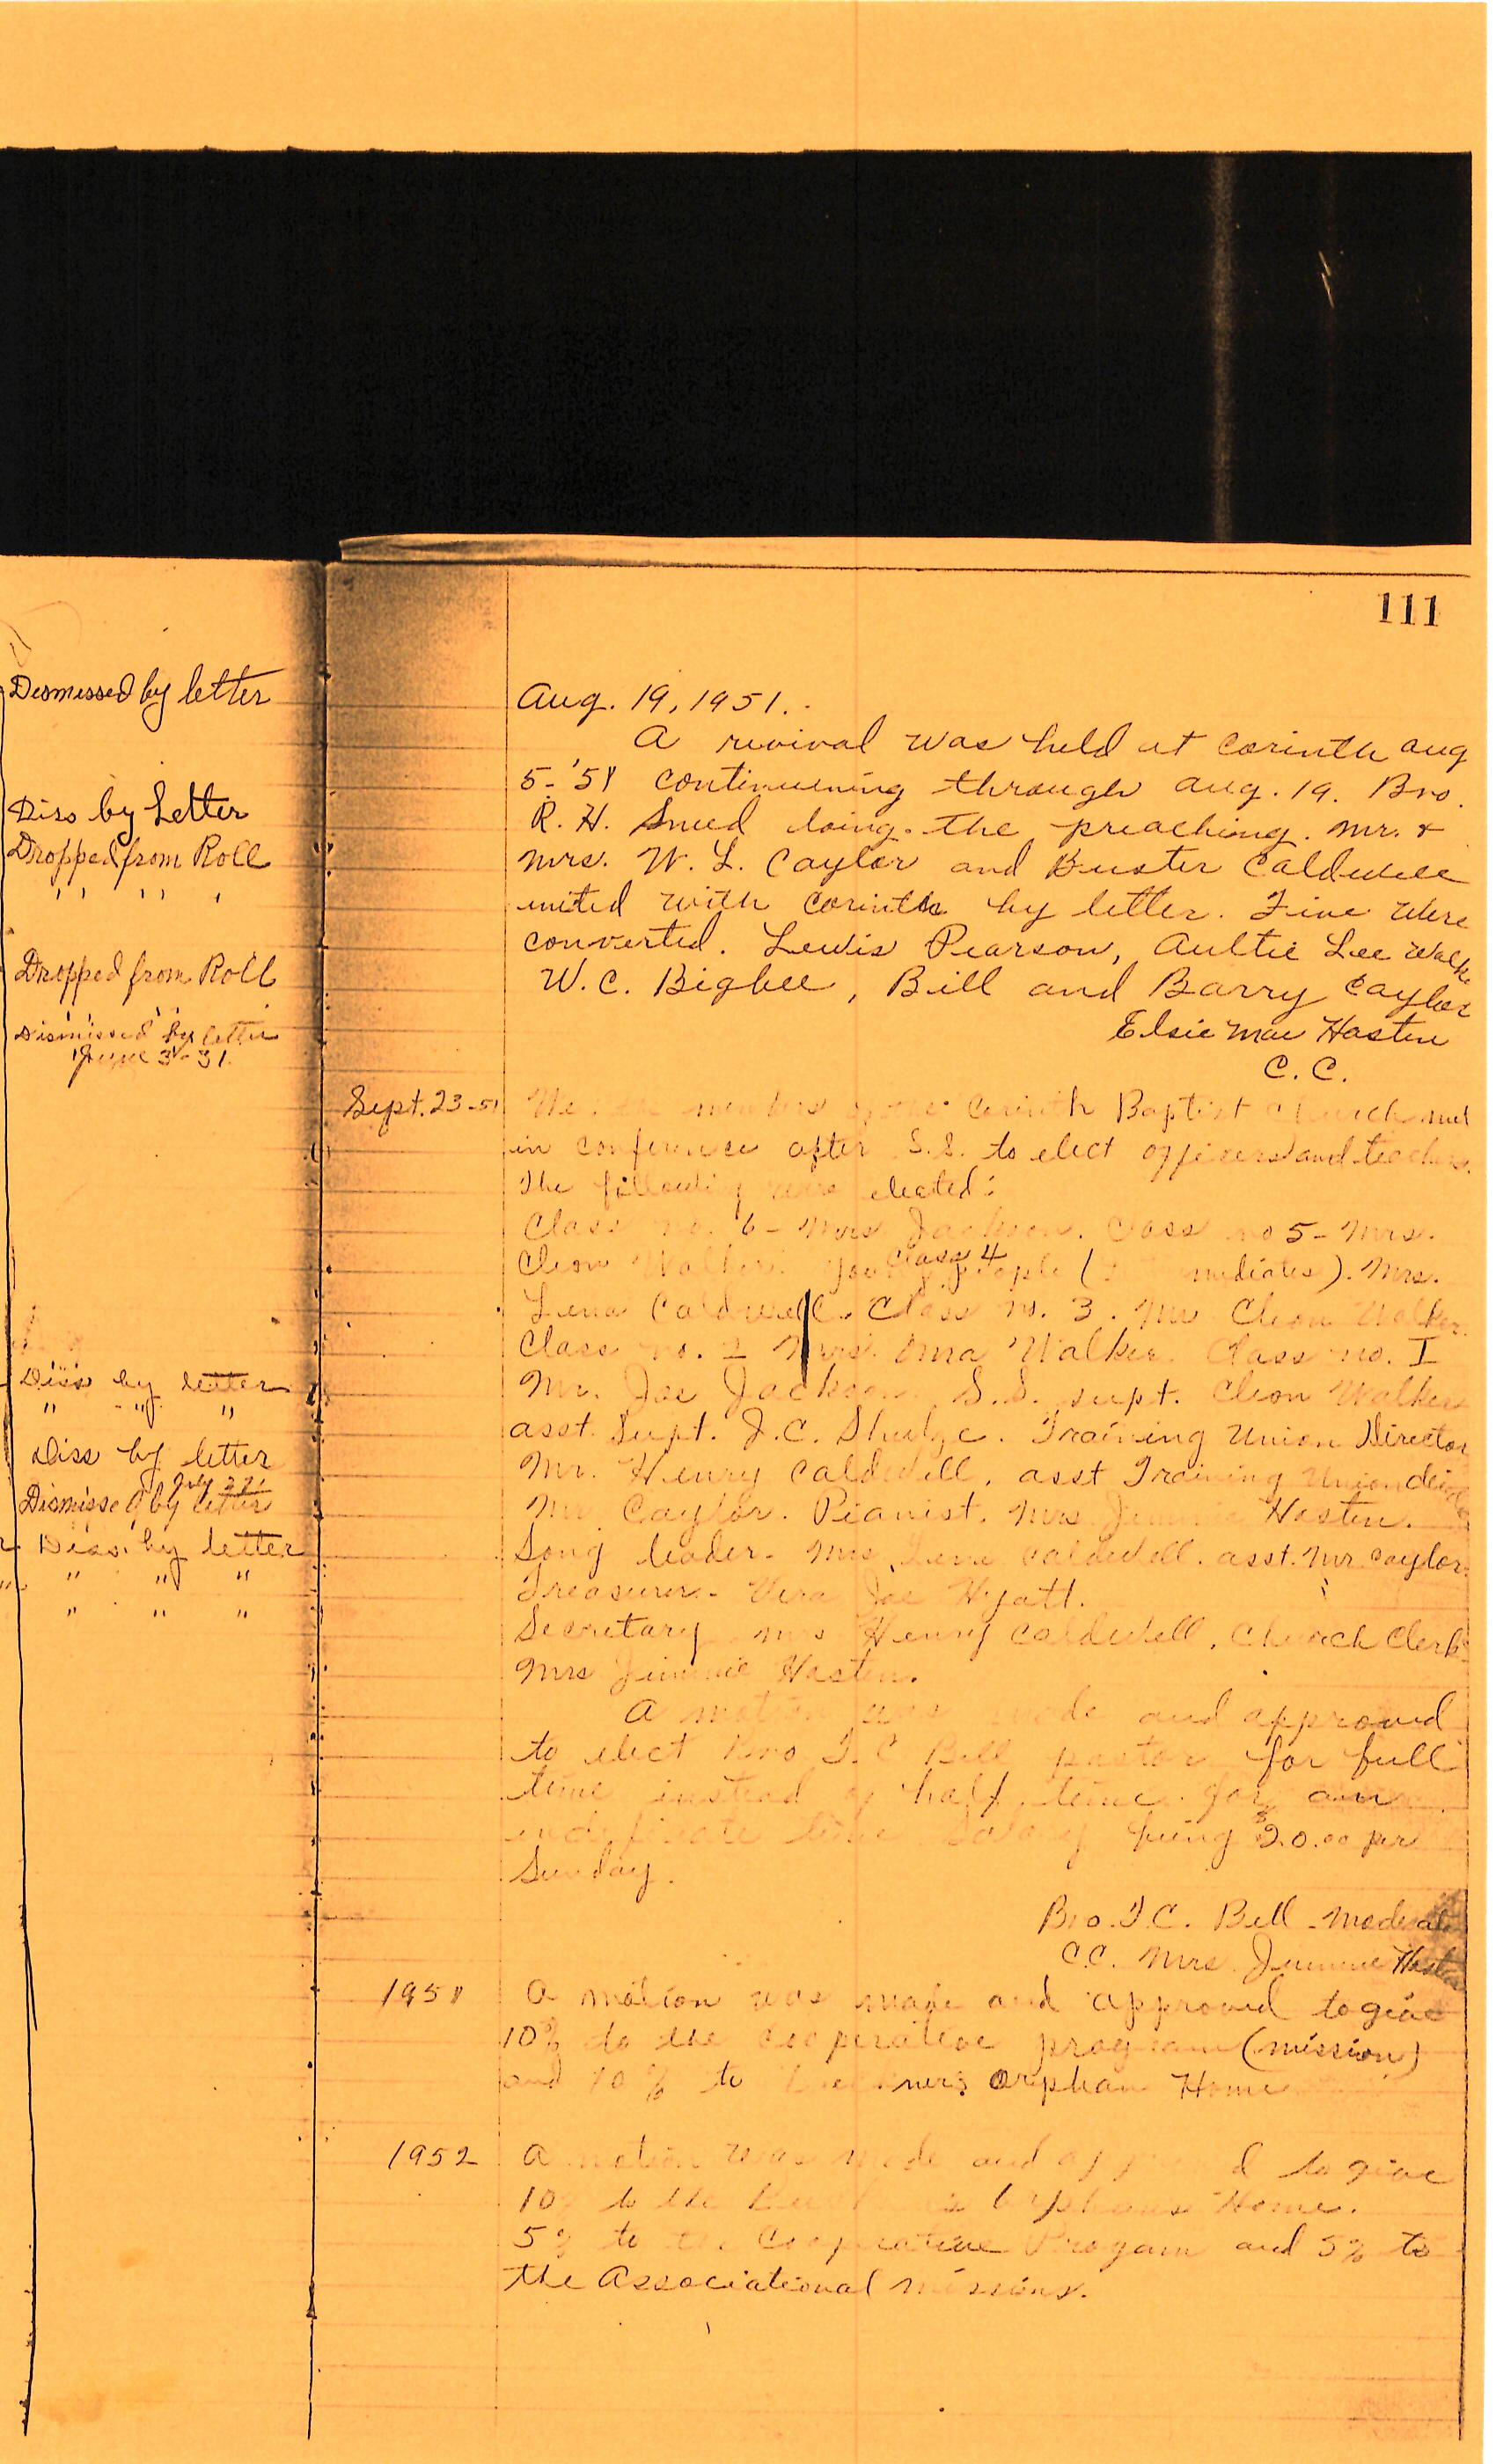 111
Dismissed by letter
Diss by Letter
Dropped from Roll
" " "
Dropped from Roll
" "
Dismissed by letter
June 31.
Diss by letter
" " "
Diss by letter
July 27
Dismissed by letter
Diss. by letter
" " "
" " "
Aug. 19, 1951.
A revival was held at Corinth Aug
5-'51 continuening through Aug. 19. Bro.
R. H. Sneed doing the preaching. Mr. &
Mrs. W. L. Caylor and Buster Caldwell
united with Corinth by letter. Five were
converted. Lewis Pearson, Aultie Lee Walke
W. C. Bigbee, Bill and Barry Caylor
Elsie Mae Hasten
C. C.
Sept. 23-51 The members of the Corinth Baptist Church met
in conference after S.S. to elect officers and teachers.
The following were elected:
Class no. 6 - Mrs Jackson. Class no 5 - Mrs.
Class 4
Cleon Walker. Young people ( mediates). Mrs.
Lena Caldwell. Class no. 3. Mr Cleon Walker.
Class no. 2 Mrs. Oma Walker. Class no. I
Mr. Joe Jackson S.S. supt. Cleon Walker
asst. Supt. J.C. Shulze. Training Union Director
Mr. Henry Caldwell. asst Training Union
Mr Caylor. Pianist. Mrs Jimmie Hasten.
Song leader - Mrs Lena Caldwell. asst. Mr Caylor.
Treasurer - Vera Joe Hyatt.
Secretary Mrs Henry Caldwell. Church Clerk
Mrs Jimmie Hasten.
A motion was made and approved
to elect Bro T. C Bell pastor for full
time instead of half time for an
indefinate time salary being $20.00 per
Sunday.
Bro. T. C. Bell - Moderator
C.C. Mrs. Jimmie Hasten
1951 A motion was made and approved to give
10% to the cooperative program (mission)
and 10% to Buckners Orphan Home
1952 A motion was made and approved to give
10% to the Buckners Orphans Home.
5% to the Cooperative Progam and 5% to
the Associational missions.